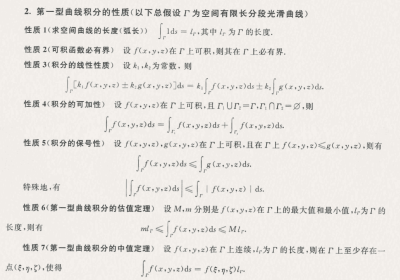 2. 第一型曲线积分的性质(以下总假设 Γ 为空间有限长分段光滑曲线)
性质 1(求空间曲线的长度(弧长)) ∫_Γ 1ds = l_Γ,其中 l_Γ 为 Γ 的长度.
性质 2(可积函数必有界) 设 f(x,y,z)在 Γ 上可积,则其在 Γ 上必有界.
性质 3(积分的线性性质) 设 k₁,k₂为常数,则
∫_Γ [k₁f(x,y,z)±k₂g(x,y,z)]ds = k₁∫_Γ f(x,y,z)ds±k₂∫_Γ g(x,y,z)ds.
性质 4(积分的可加性) 设 f(x,y,z)在 Γ 上可积,且 Γ₁∪Γ₂=Γ,Γ₁∩Γ₂=∅,则
∫_Γ f(x,y,z)ds = ∫_Γ₁ f(x,y,z)ds + ∫_Γ₂ f(x,y,z)ds.
性质 5(积分的保号性) 设 f(x,y,z),g(x,y,z)在 Γ 上可积,且在 Γ 上 f(x,y,z)≤g(x,y,z),则有
∫_Γ f(x,y,z)ds ≤ ∫_Γ g(x,y,z)ds.
特殊地,有 |∫_Γ f(x,y,z)ds| ≤ ∫_Γ |f(x,y,z)|ds.
性质 6(第一型曲线积分的估值定理) 设 M,m 分别是 f(x,y,z)在 Γ 上的最大值和最小值,l_Γ为 Γ 的
长度,则有 ml_Γ ≤ ∫_Γ f(x,y,z)ds ≤ Ml_Γ.
性质 7(第一型曲线积分的中值定理) 设 f(x,y,z)在 Γ 上连续,l_Γ为 Γ 的长度,则在 Γ 上至少存在一
点(ξ,η,ζ),使得 ∫_Γ f(x,y,z)ds = f(ξ,η,ζ)l_Γ.